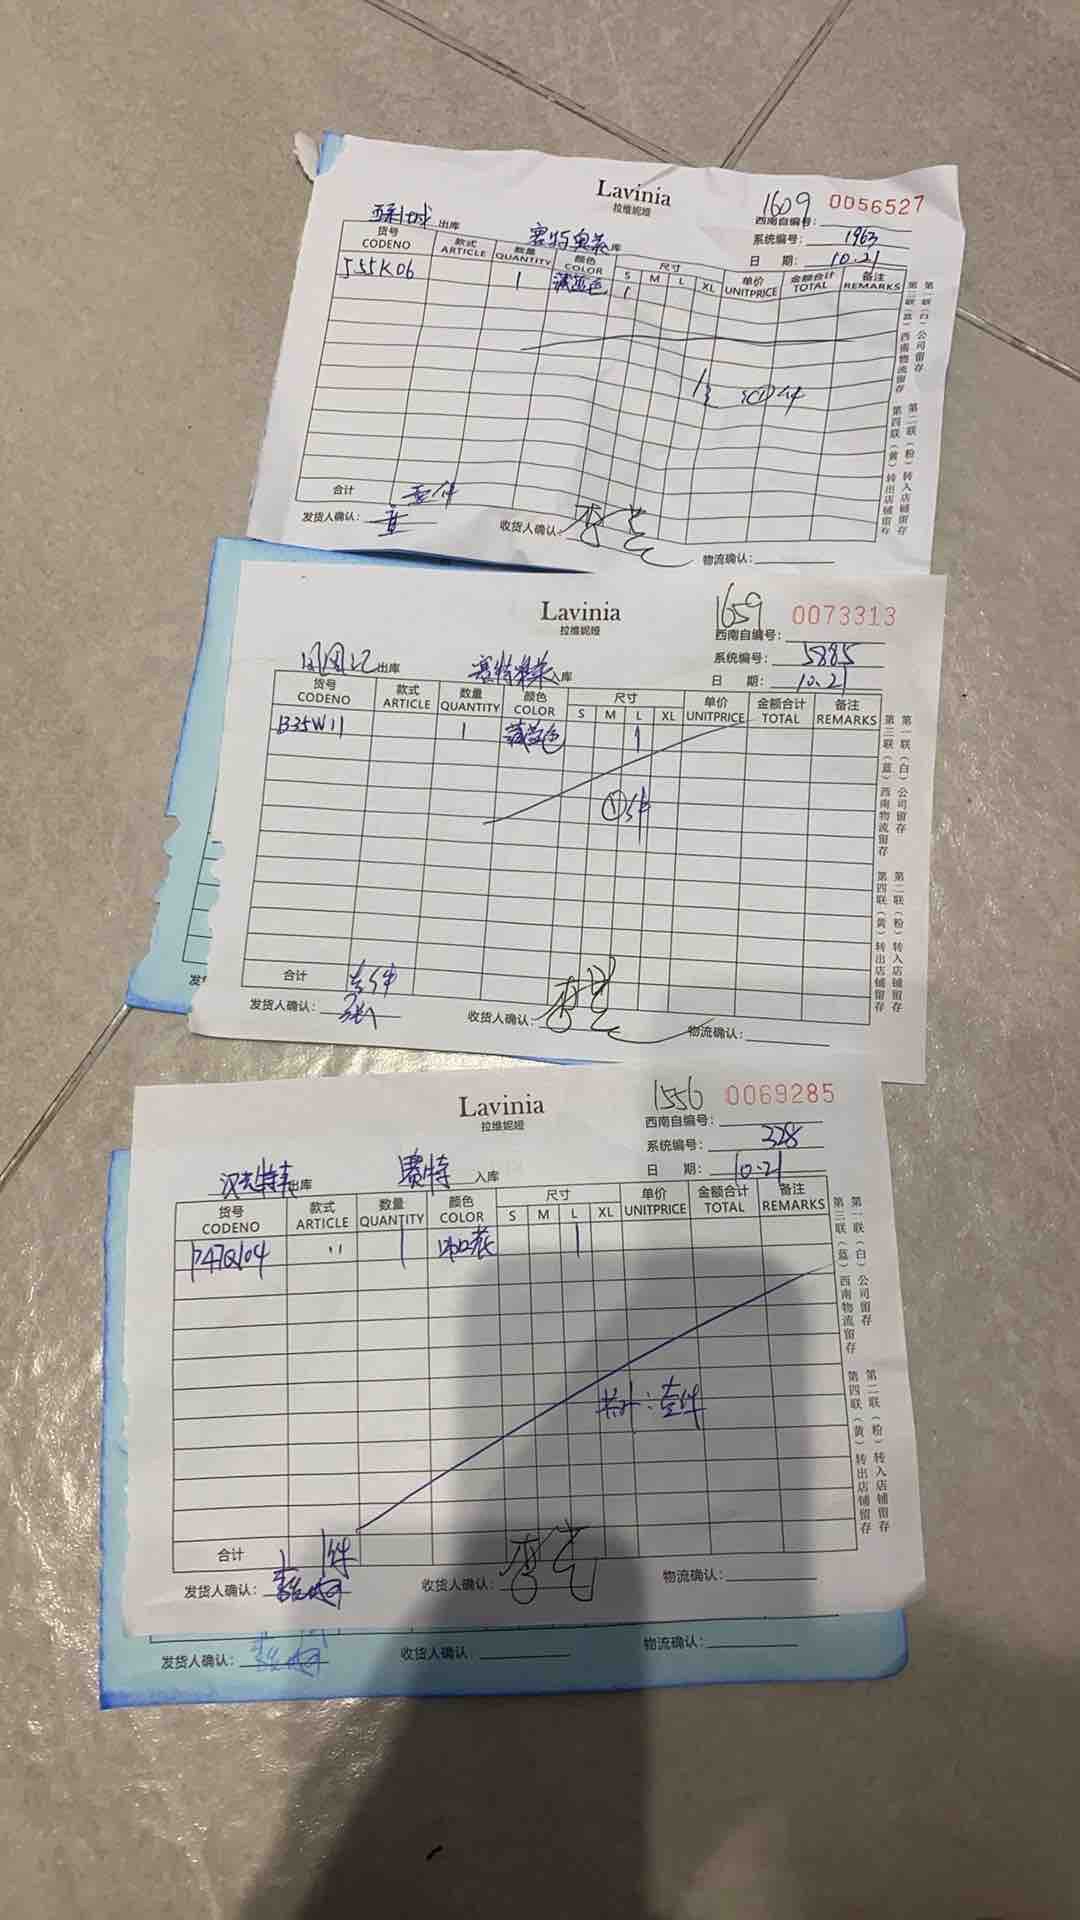 Lavinia
拉维妮娅
1609 0056527
西南自编号:
系统编号: 1963
日 期: 10.21
出库 赛特奥莱 库
货号 款式 数量 颜色 尺寸 单价 金额合计 备注
CODENO ARTICLE QUANTITY COLOR S M L XL UNITPRICE TOTAL REMARKS
J55K06 1 藏蓝色 1
合计 壹件
发货人确认: 收货人确认: 物流确认:
第一联(白)公司留存
第三联(蓝)西南物流留存
第二联(粉)转入店铺留存
第四联(黄)转出店铺留存
Lavinia
拉维妮娅
1659 0073313
西南自编号:
系统编号: 5885
日 期: 10.21
出库 赛特奥莱 入库
货号 款式 数量 颜色 尺寸 单价 金额合计 备注
CODENO ARTICLE QUANTITY COLOR S M L XL UNITPRICE TOTAL REMARKS
B35W11 1 藏蓝色 1
①件
合计 壹件
发货人确认: 张 收货人确认: 物流确认:
第一联(白)公司留存
第三联(蓝)西南物流留存
第二联(粉)转入店铺留存
第四联(黄)转出店铺留存
Lavinia
拉维妮娅
1556 0069285
西南自编号:
系统编号: 328
日 期: 10.21
出库 赛特 入库
货号 款式 数量 颜色 尺寸 单价 金额合计 备注
CODENO ARTICLE QUANTITY COLOR S M L XL UNITPRICE TOTAL REMARKS
P47Q104 1 1
共计:壹件
合计 1件
发货人确认: 收货人确认: 物流确认:
第一联(白)公司留存
第三联(蓝)西南物流留存
第二联(粉)转入店铺留存
第四联(黄)转出店铺留存
发货人确认: 收货人确认: 物流确认: